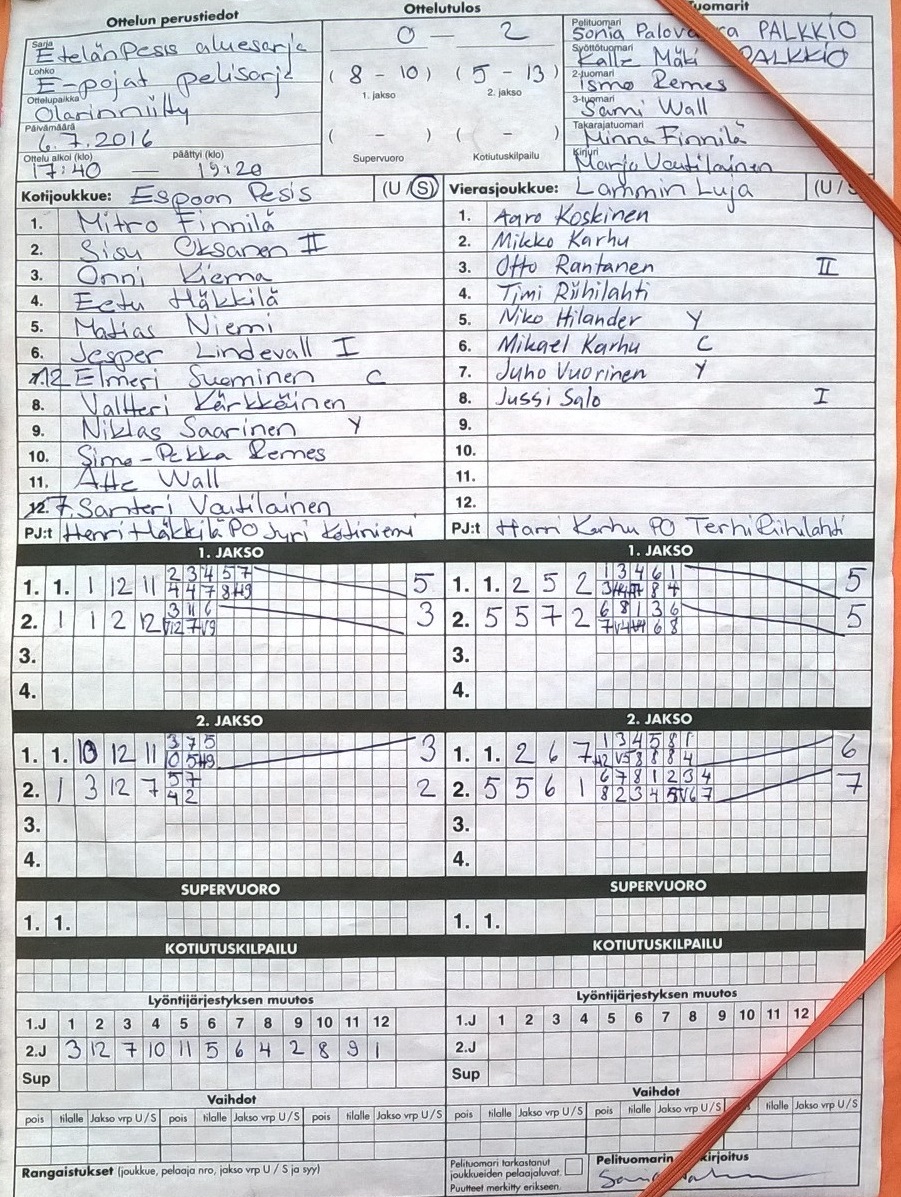 Ottelun perustiedot
Sarja
EtelänPesis aluesarja
Lohko
E-pojat pelisarja
Ottelupaikka
Olarinniitty
Päivämäärä
6.7.2016
Ottelu alkoi (klo) päättyi (klo)
17:40 — 19:20
Ottelutulos
0 — 2
(8 - 10) (5 - 13)
1. jakso 2. jakso
( - ) ( - )
Supervuoro Kotiutuskilpailu
Tuomarit
Pelituomari
Sonia PALKKIO
Syöttötuomari
Kalle Mäki PALKKIO
2-tuomari
Ismo Remes
3-tuomari
Sami Wall
Takarajatuomari
Minna Finnilä
Kirjuri
Marjo Voutilainen
Kotijoukkue: Espoon Pesis (U / S)
1. Mitro Finnilä
2. Sisu Oksanen II
3. Onni Kiema
4. Eetu Häkkilä
5. Matias Niemi
6. Jesper Lindevall I
7. 12 Elmeri Suominen C
8. Valtteri Kärkkäinen
9. Niklas Saarinen Y
10. Simo-Pekka Remes
11. Atte Wall
12. 7. Santeri Voutilainen
PJ:t Henri Häkkilä PO Jyri Kotiniemi
Vierasjoukkue: Lammin Luja (U / S
1. Aaro Koskinen
2. Mikko Karhu
3. Otto Rantanen II
4. Timi Riihilahti
5. Niko Hilander Y
6. Mikael Karhu C
7. Juho Vuorinen Y
8. Jussi Salo I
9.
10.
11.
12.
PJ:t Harri Karhu PO Terhi Riihilahti
1. JAKSO
1. 1. 1 12 11 2 3 4 5 7 5
4 4 7 8
2. 1 1 2 12 3 11 6 3
3.
4.
1. JAKSO
1. 1. 2 5 2 1 3 4 6 1 5
8 4
2. 5 5 7 2 6 8 1 3 6 5
6 8
3.
4.
2. JAKSO
1. 1. 10 12 11 3 7 5 3
2. 1 3 12 7 5 7 2
4 2
3.
4.
2. JAKSO
1. 1. 2 6 7 1 3 4 5 8 1 6
8 8 8 4
2. 5 5 6 1 6 7 8 1 2 3 4 7
8 2 3 4 6 7
3.
4.
SUPERVUORO
1. 1.
SUPERVUORO
1. 1.
KOTIUTUSKILPAILU
KOTIUTUSKILPAILU
Lyöntijärjestyksen muutos
1.J 1 2 3 4 5 6 7 8 9 10 11 12
2.J 3 12 7 10 11 5 6 4 2 8 9 1
Sup
Lyöntijärjestyksen muutos
1.J 1 2 3 4 5 6 7 8 9 10 11 12
2.J
Sup
Vaihdot
pois tilalle Jakso vrp U / S pois tilalle Jakso vrp U / S pois tilalle Jakso vrp U / S
Vaihdot
pois tilalle Jakso vrp U / S pois tilalle Jakso vrp U / S tilalle Jakso vrp U / S
Rangaistukset (joukkue, pelaaja nro, jakso vrp U / S ja syy)
Pelituomari tarkastanut
joukkueiden pelaajaluvat.
Puutteet merkitty erikseen.
Pelituomarin kirjoitus